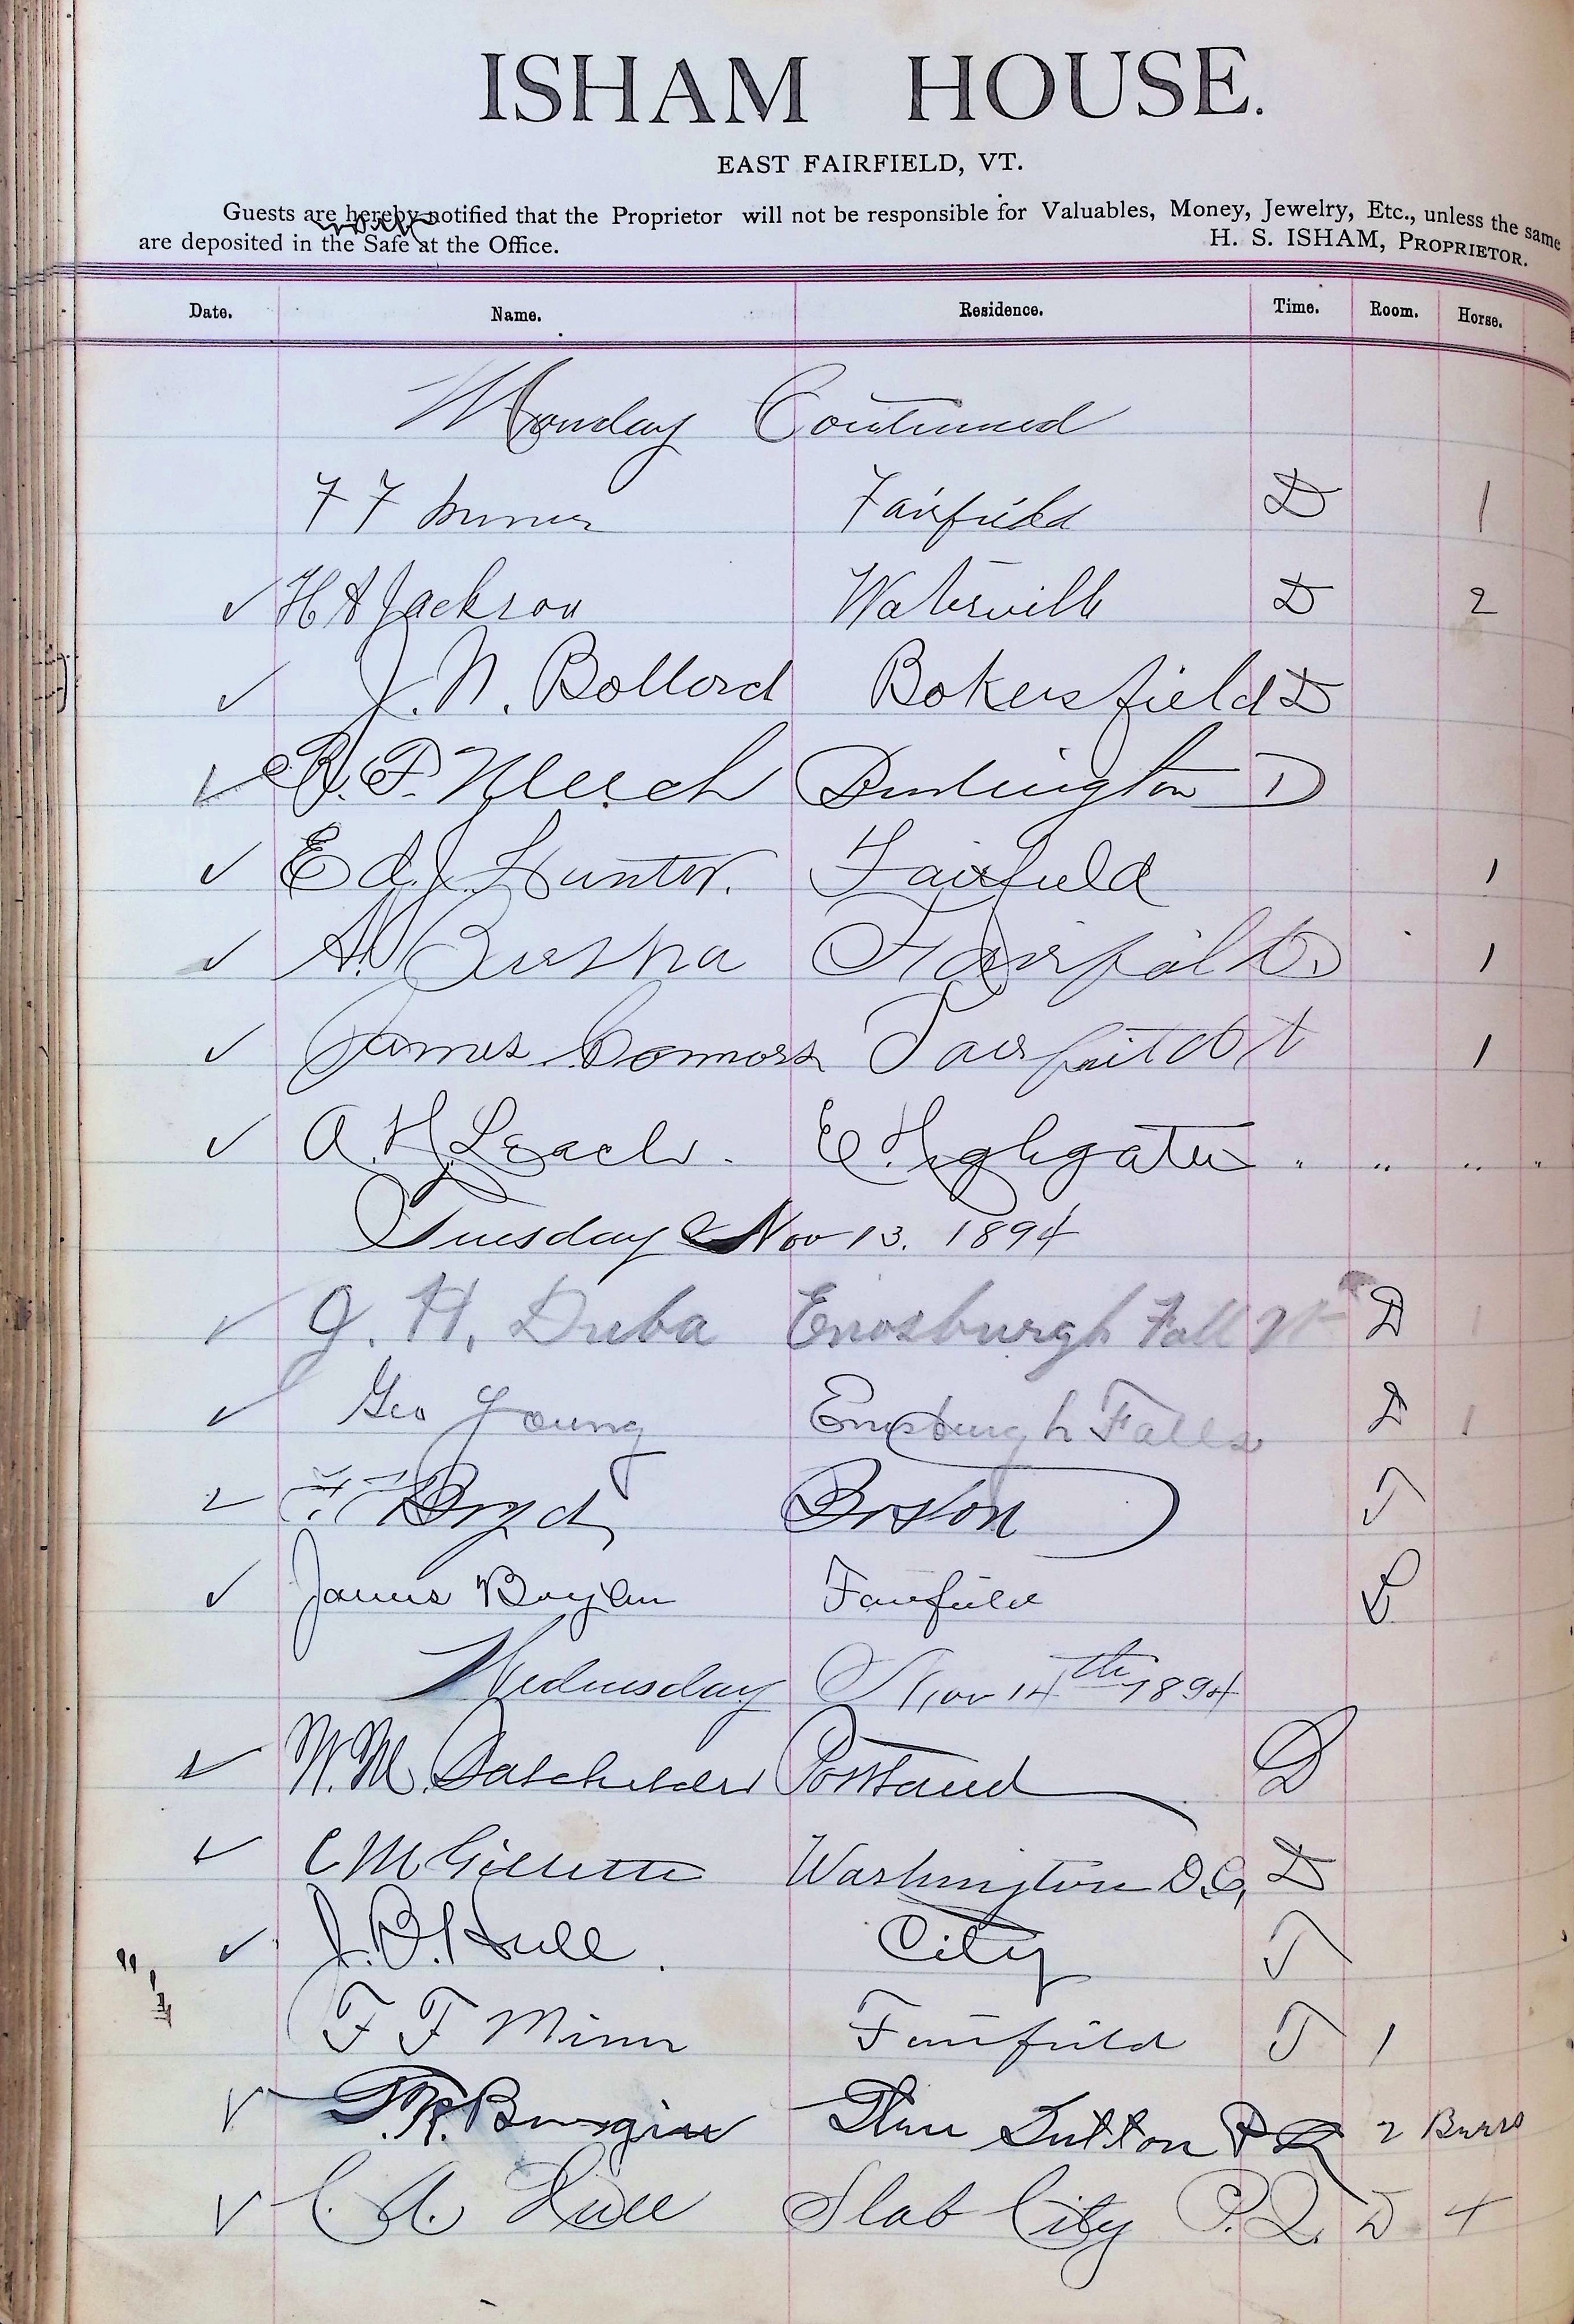 ISHAM HOUSE.
EAST FAIRFIELD, VT.
Guests are hereby notified that the Proprietor will not be responsible for Valuables, Money, Jewelry, Etc., unless the same
are deposited in the Safe at the Office. H. S. ISHAM, PROPRIETOR.
Date. Name. Residence. Time. Room. Horse.
Monday Continued
F F Fairfield D 1
✓ H A Jackson Waterville D 2
✓ J. N. Bollord Bokersfield D
✓ F. Burlington D
✓ Ed. J. Hunter. Fairfield 1
✓ A. 1
✓ James Connors 1
✓ A. H. Leach. E. Highgate " " " "
Tuesday Nov 13. 1894
✓ J. H. Duba Enosburgh Fall Vt D 1
✓ Geo Young Enosburgh Falls D 1
Boyd Boston T
✓ James Boylan Fairfield
Wednesday Nov 14th 1894
✓ W. M. Batchelder Portland D
✓ C M Gillette Washington D.C. D
✓ J. B. Hull. City T
F F Minor Fairfield T 1
✓ Sutton P Q 2
✓ C. A. Hull Slab City P.Q. D 4